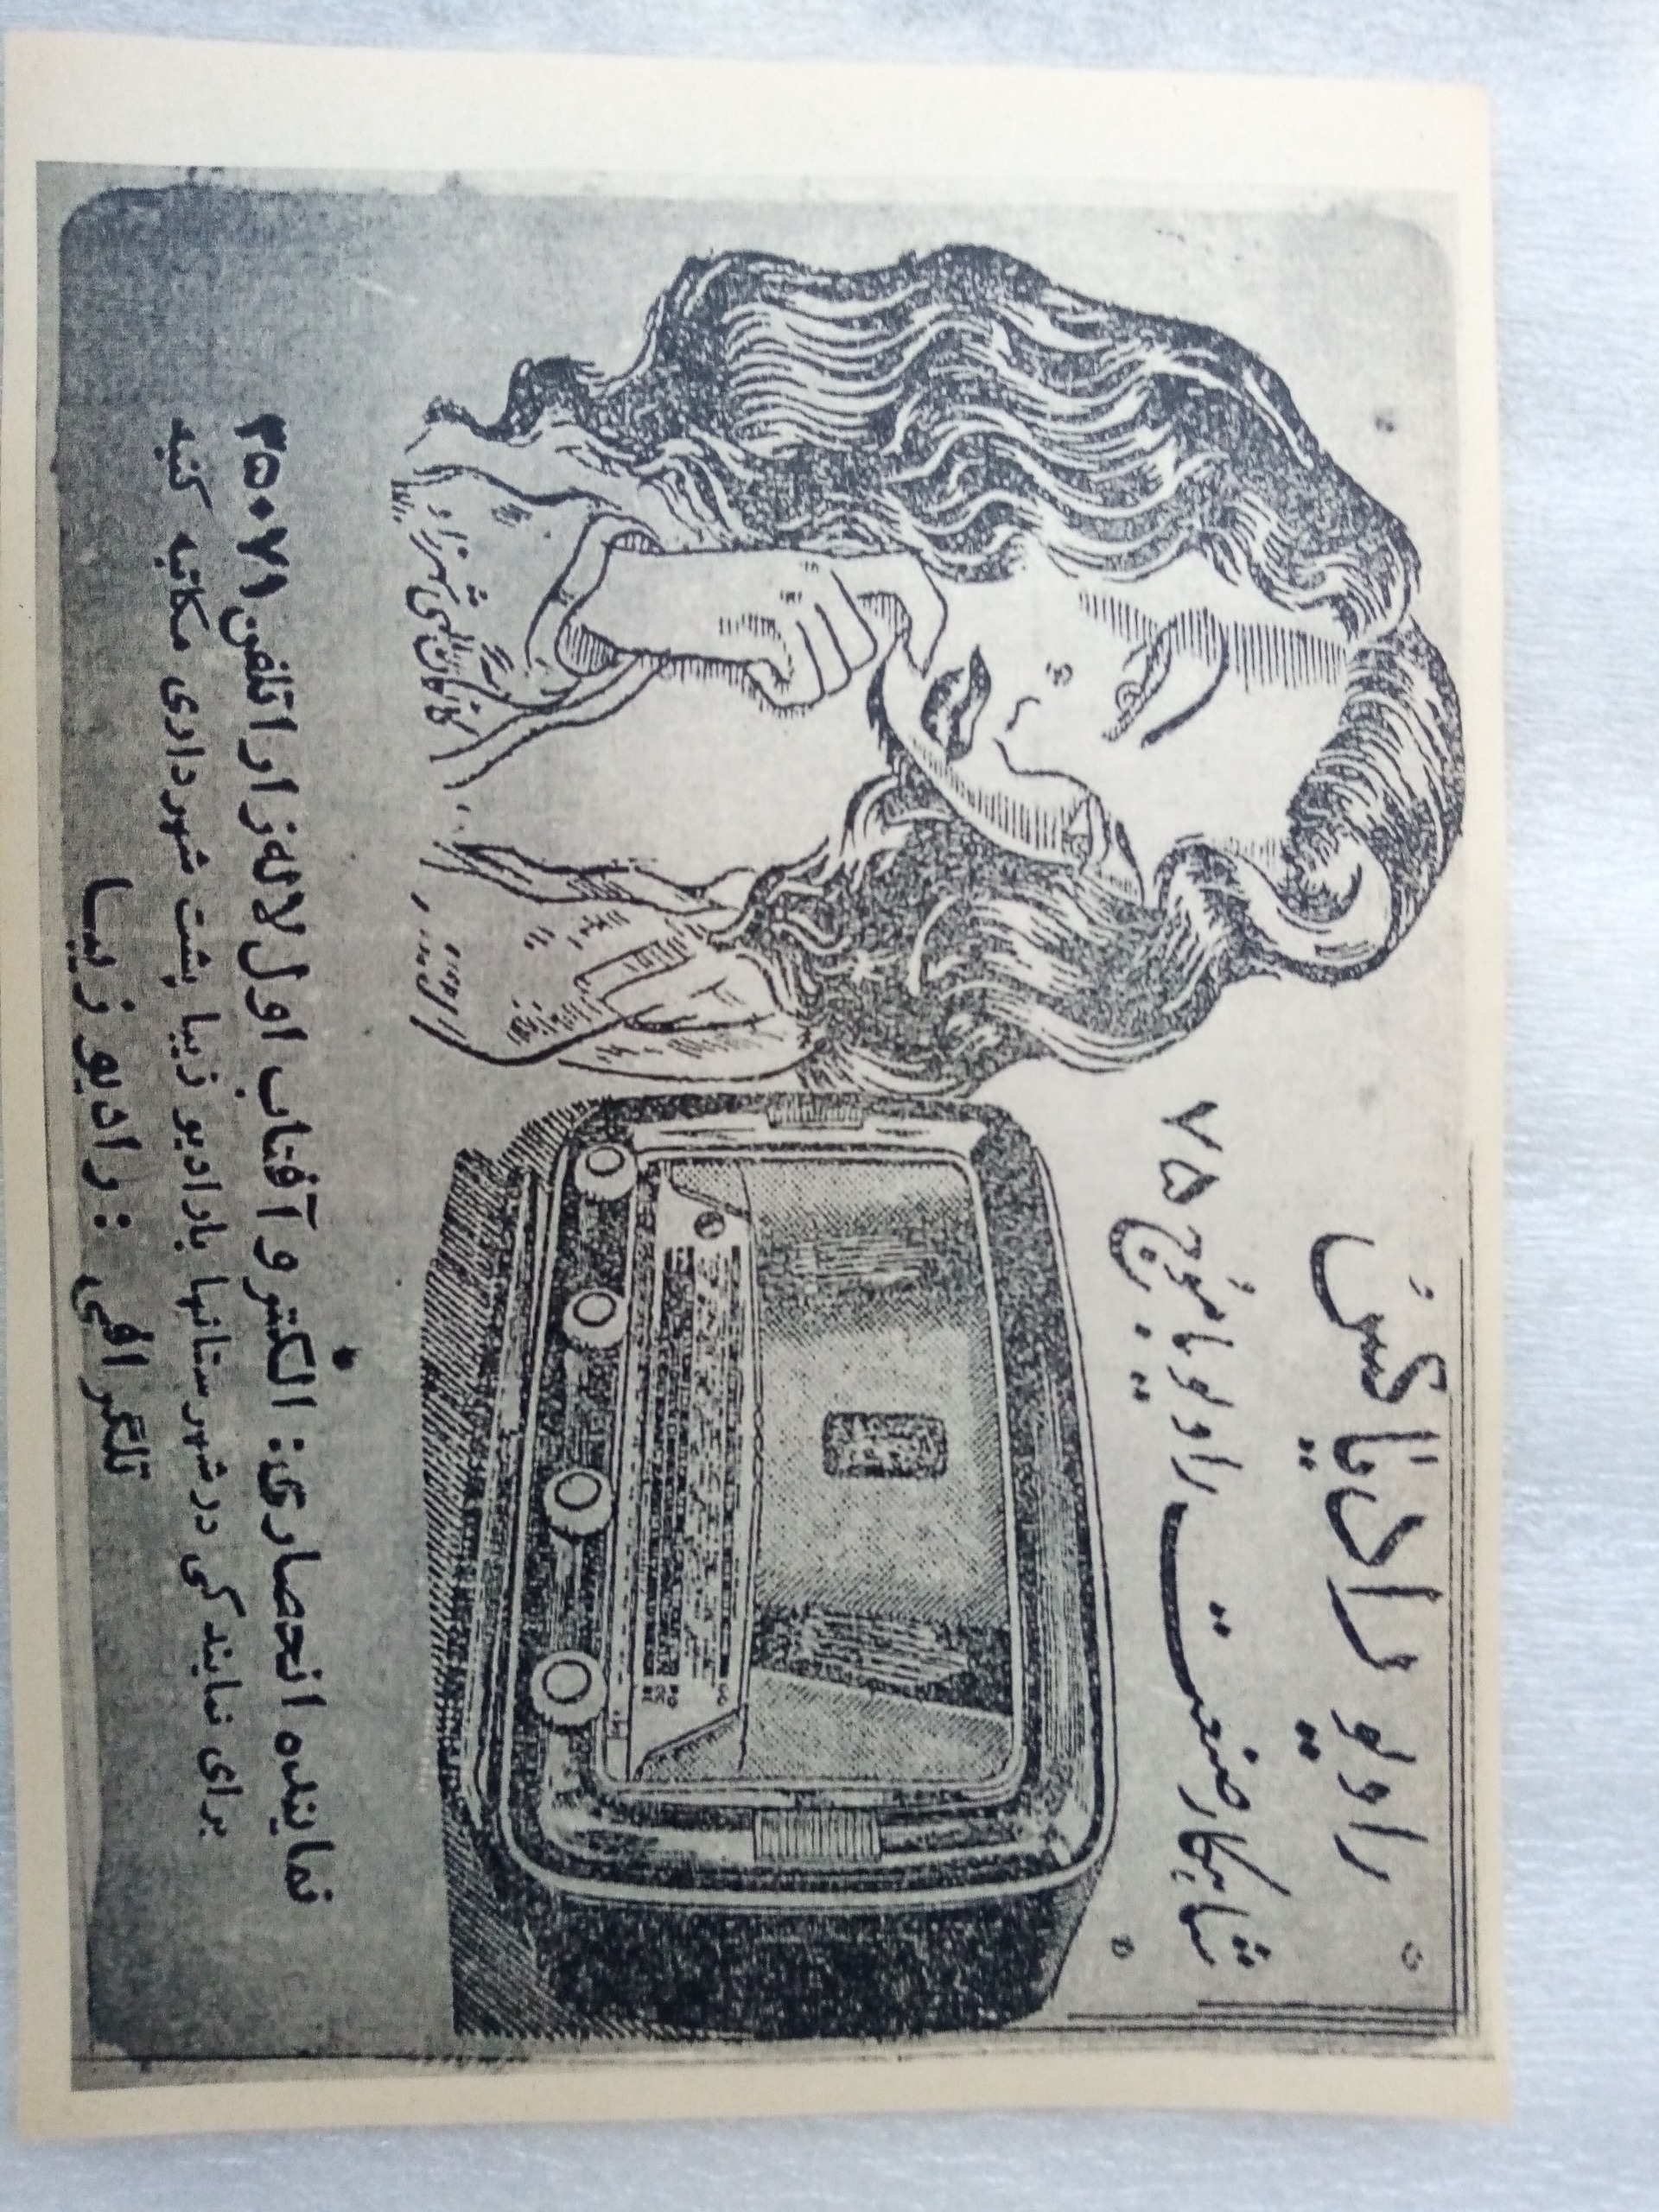 رادیو دیاکس
شاهکار صنعت رادیو با موج ۷۵
کانون آگهی شهرزاد
نماینده انحصاری: الکترو آفتاب اول لاله‌زار تلفن ۳۵۰۷۱
برای نمایندگی در شهرستانها با رادیو زیبا پشت شهرداری مکاتبه کنید
تلگرافی : رادیو زیبا